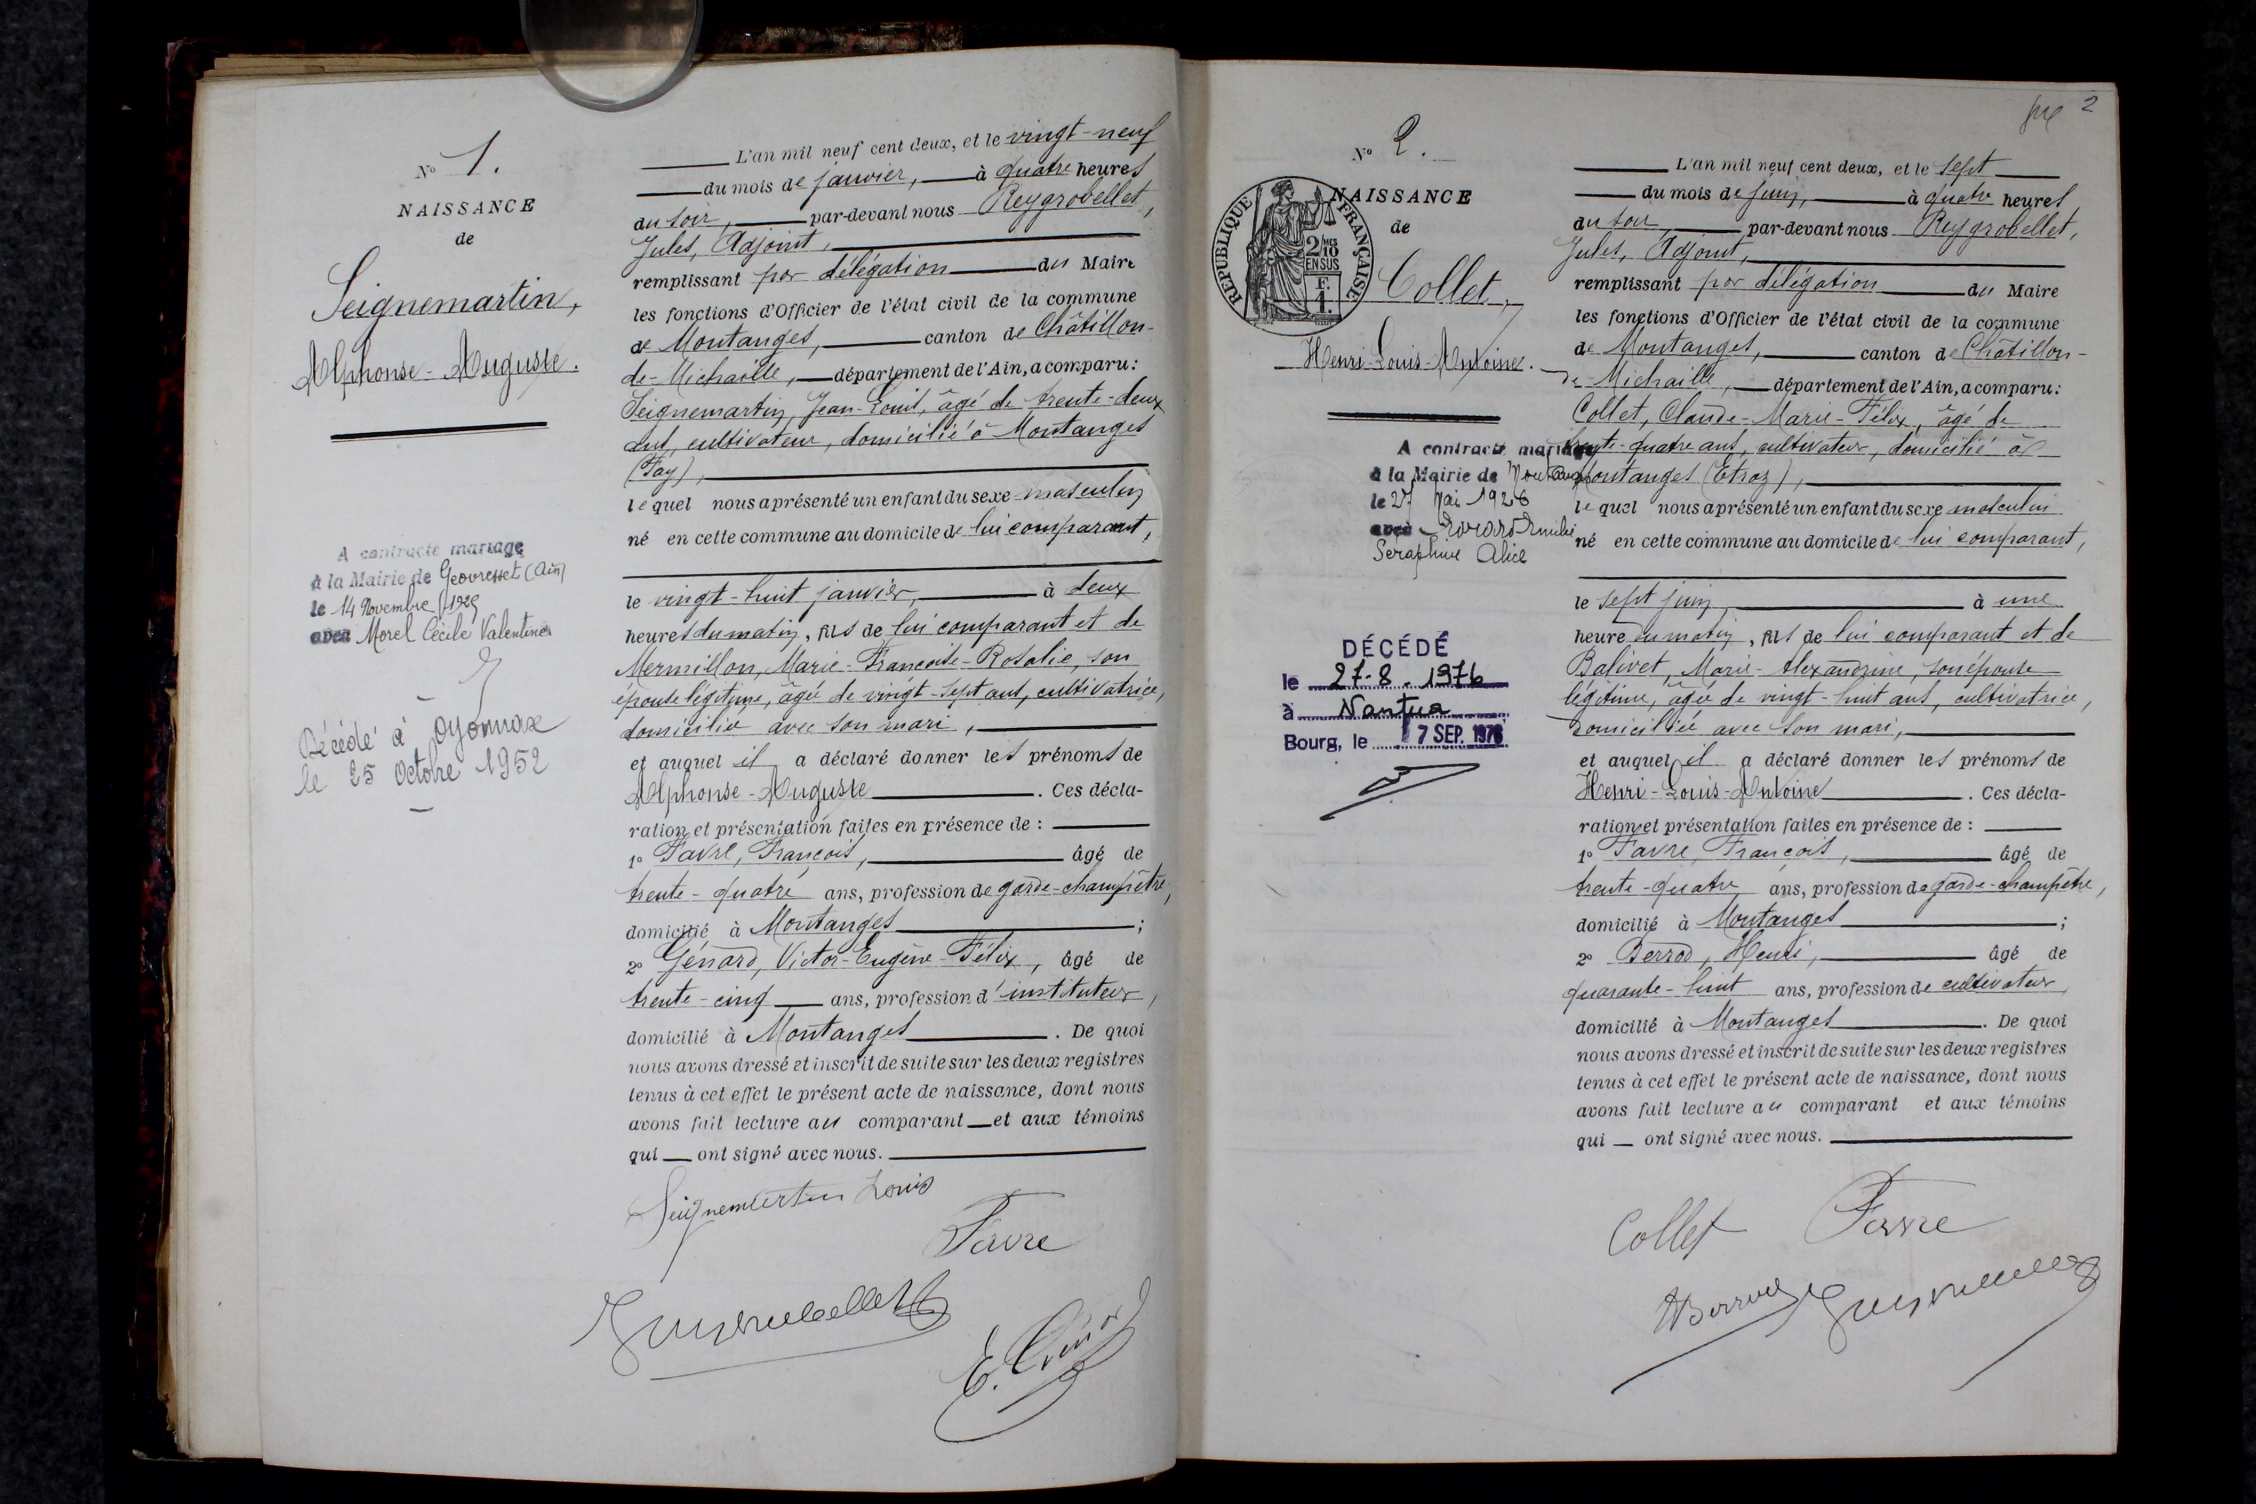 N° 1.
NAISSANCE
de
Seignemartin,
Alphonse-Auguste.
A contracté mariage
à la Mairie de Geovresset (Ain)
le 14 Novembre 1925
avec Morel Cécile Valentine
Décédé à Oyonnax
le 25 Octobre 1952
L'an mil neuf cent deux, et le vingt-neuf
du mois de janvier, à quatre heures
du soir, par-devant nous Reygrobellet,
Jules, Adjoint,
remplissant par délégation du Maire
les fonctions d'Officier de l'état civil de la commune
de Montanges, canton de Châtillon-
de-Michaille, département de l'Ain, a comparu:
Seignemartin, Jean-Louis, âgé de trente-deux
ans, cultivateur, domicilié à Montanges
(Fay),
lequel nous a présenté un enfant du sexe masculin
né en cette commune au domicile de lui comparant,
le vingt-huit janvier, à deux
heures du matin, fils de lui comparant et de
Mermillon, Marie-Françoise-Rosalie, son
épouse légitime, âgée de vingt-sept ans, cultivatrice,
domiciliée avec son mari,
et auquel il a déclaré donner les prénoms de
Alphonse-Auguste. Ces décla-
ration et présentation faites en présence de :
1° Favre, François, âgé de
trente-quatre ans, profession de garde-champêtre,
domicilié à Montanges ;
2° Génard, Victor-Eugène-Félix, âgé de
trente-cinq ans, profession d'instituteur,
domicilié à Montanges. De quoi
nous avons dressé et inscrit de suite sur les deux registres
tenus à cet effet le présent acte de naissance, dont nous
avons fait lecture au comparant et aux témoins
qui ont signé avec nous.
Seignemartin Louis
Favre
2
N° 2.
NAISSANCE
de
REPUBLIQUE FRANÇAISE
2/10 MES
EN SUS
F.
1.
Collet,
Henri-Louis-Antoine.
A contracté mariage
à la Mairie de Montanges
le 27 Mai 1926
avec
Seraphine Alice
DÉCÉDÉ
le 27-8-1976
à Nantua
Bourg, le 17 SEP. 1976
L'an mil neuf cent deux, et le sept
du mois de juin, à quatre heures
du soir, par-devant nous Reygrobellet,
Jules, Adjoint,
remplissant par délégation du Maire
les fonctions d'Officier de l'état civil de la commune
de Montanges, canton de Châtillon-
de-Michaille, département de l'Ain, a comparu:
Collet, Claude-Marie-Félix, âgé de
trente-quatre ans, cultivateur, domicilié à
Montanges (Etroz),
lequel nous a présenté un enfant du sexe masculin
né en cette commune au domicile de lui comparant,
le sept juin, à une
heure du matin, fils de lui comparant et de
Balivet, Marie-Alexandrine, son épouse
légitime, âgée de vingt-huit ans, cultivatrice,
domiciliée avec son mari,
et auquel il a déclaré donner les prénoms de
Henri-Louis-Antoine. Ces décla-
ration et présentation faites en présence de :
1° Favre, François, âgé de
trente-quatre ans, profession de garde-champêtre,
domicilié à Montanges ;
2° Berrod, Henri, âgé de
quarante-huit ans, profession de cultivateur,
domicilié à Montanges. De quoi
nous avons dressé et inscrit de suite sur les deux registres
tenus à cet effet le présent acte de naissance, dont nous
avons fait lecture au comparant et aux témoins
qui ont signé avec nous.
Collet Favre
HBerrod